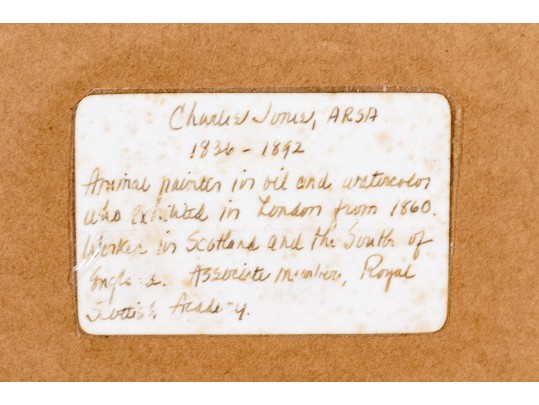 Charles Jones, ARSA
1836 - 1892
Animal painter in oil and watercolor
who exhibited in London from 1860.
Worked in Scotland and the South of
England. Associate member, Royal
Scottish Academy.